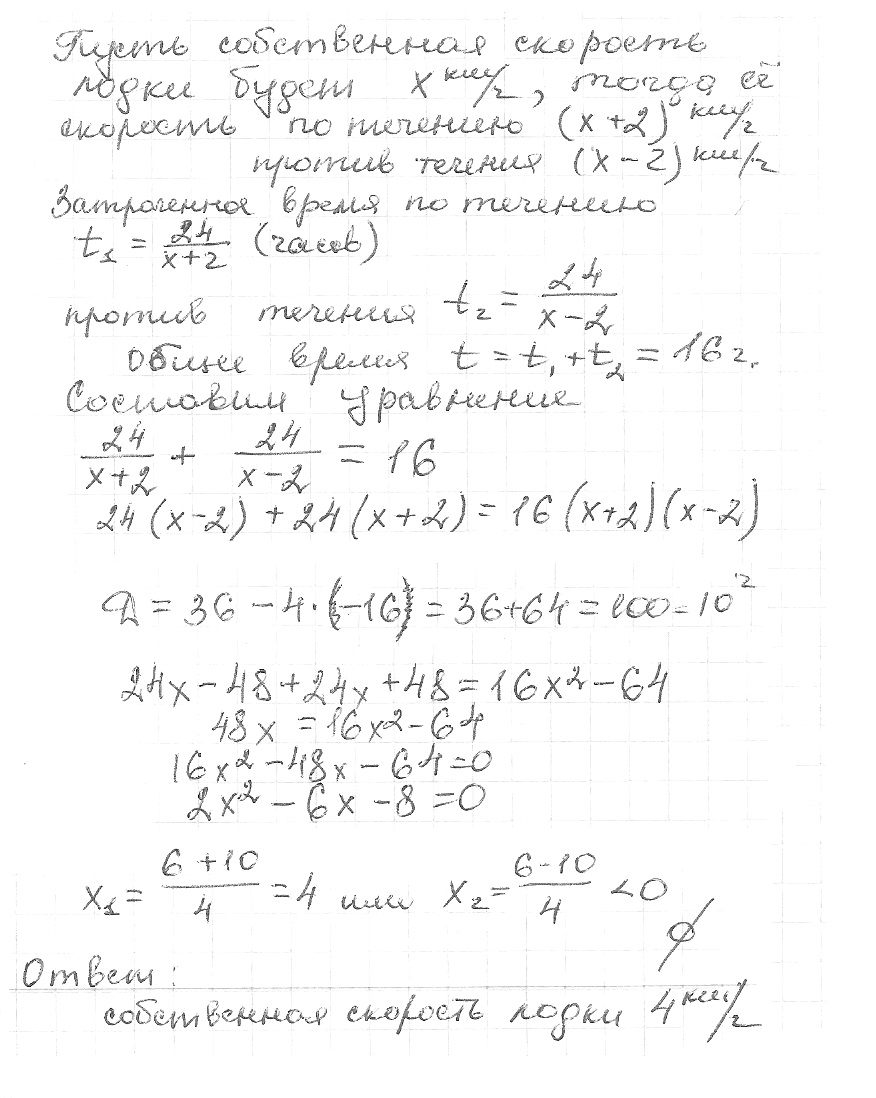 Пусть собственная скорость
лодки будет x км/ч, тогда её
скорость по течению (x+2) км/ч
против течения (x-2) км/ч
Затраченное время по течению
t₁ = 24/(x+2) (часов)
против течения t₂ = 24/(x-2)
Общее время t = t₁ + t₂ = 16 ч.
Составим уравнение
24/(x+2) + 24/(x-2) = 16
24(x-2) + 24(x+2) = 16(x+2)(x-2)
Д = 36 - 4·(-16) = 36+64 = 100 = 10²
24x - 48 + 24x + 48 = 16x² - 64
48x = 16x² - 64
16x² - 48x - 64 = 0
2x² - 6x - 8 = 0
x₁ = (6+10)/4 = 4 или x₂ = (6-10)/4 < 0
∅
Ответ:
собственная скорость лодки 4 км/ч